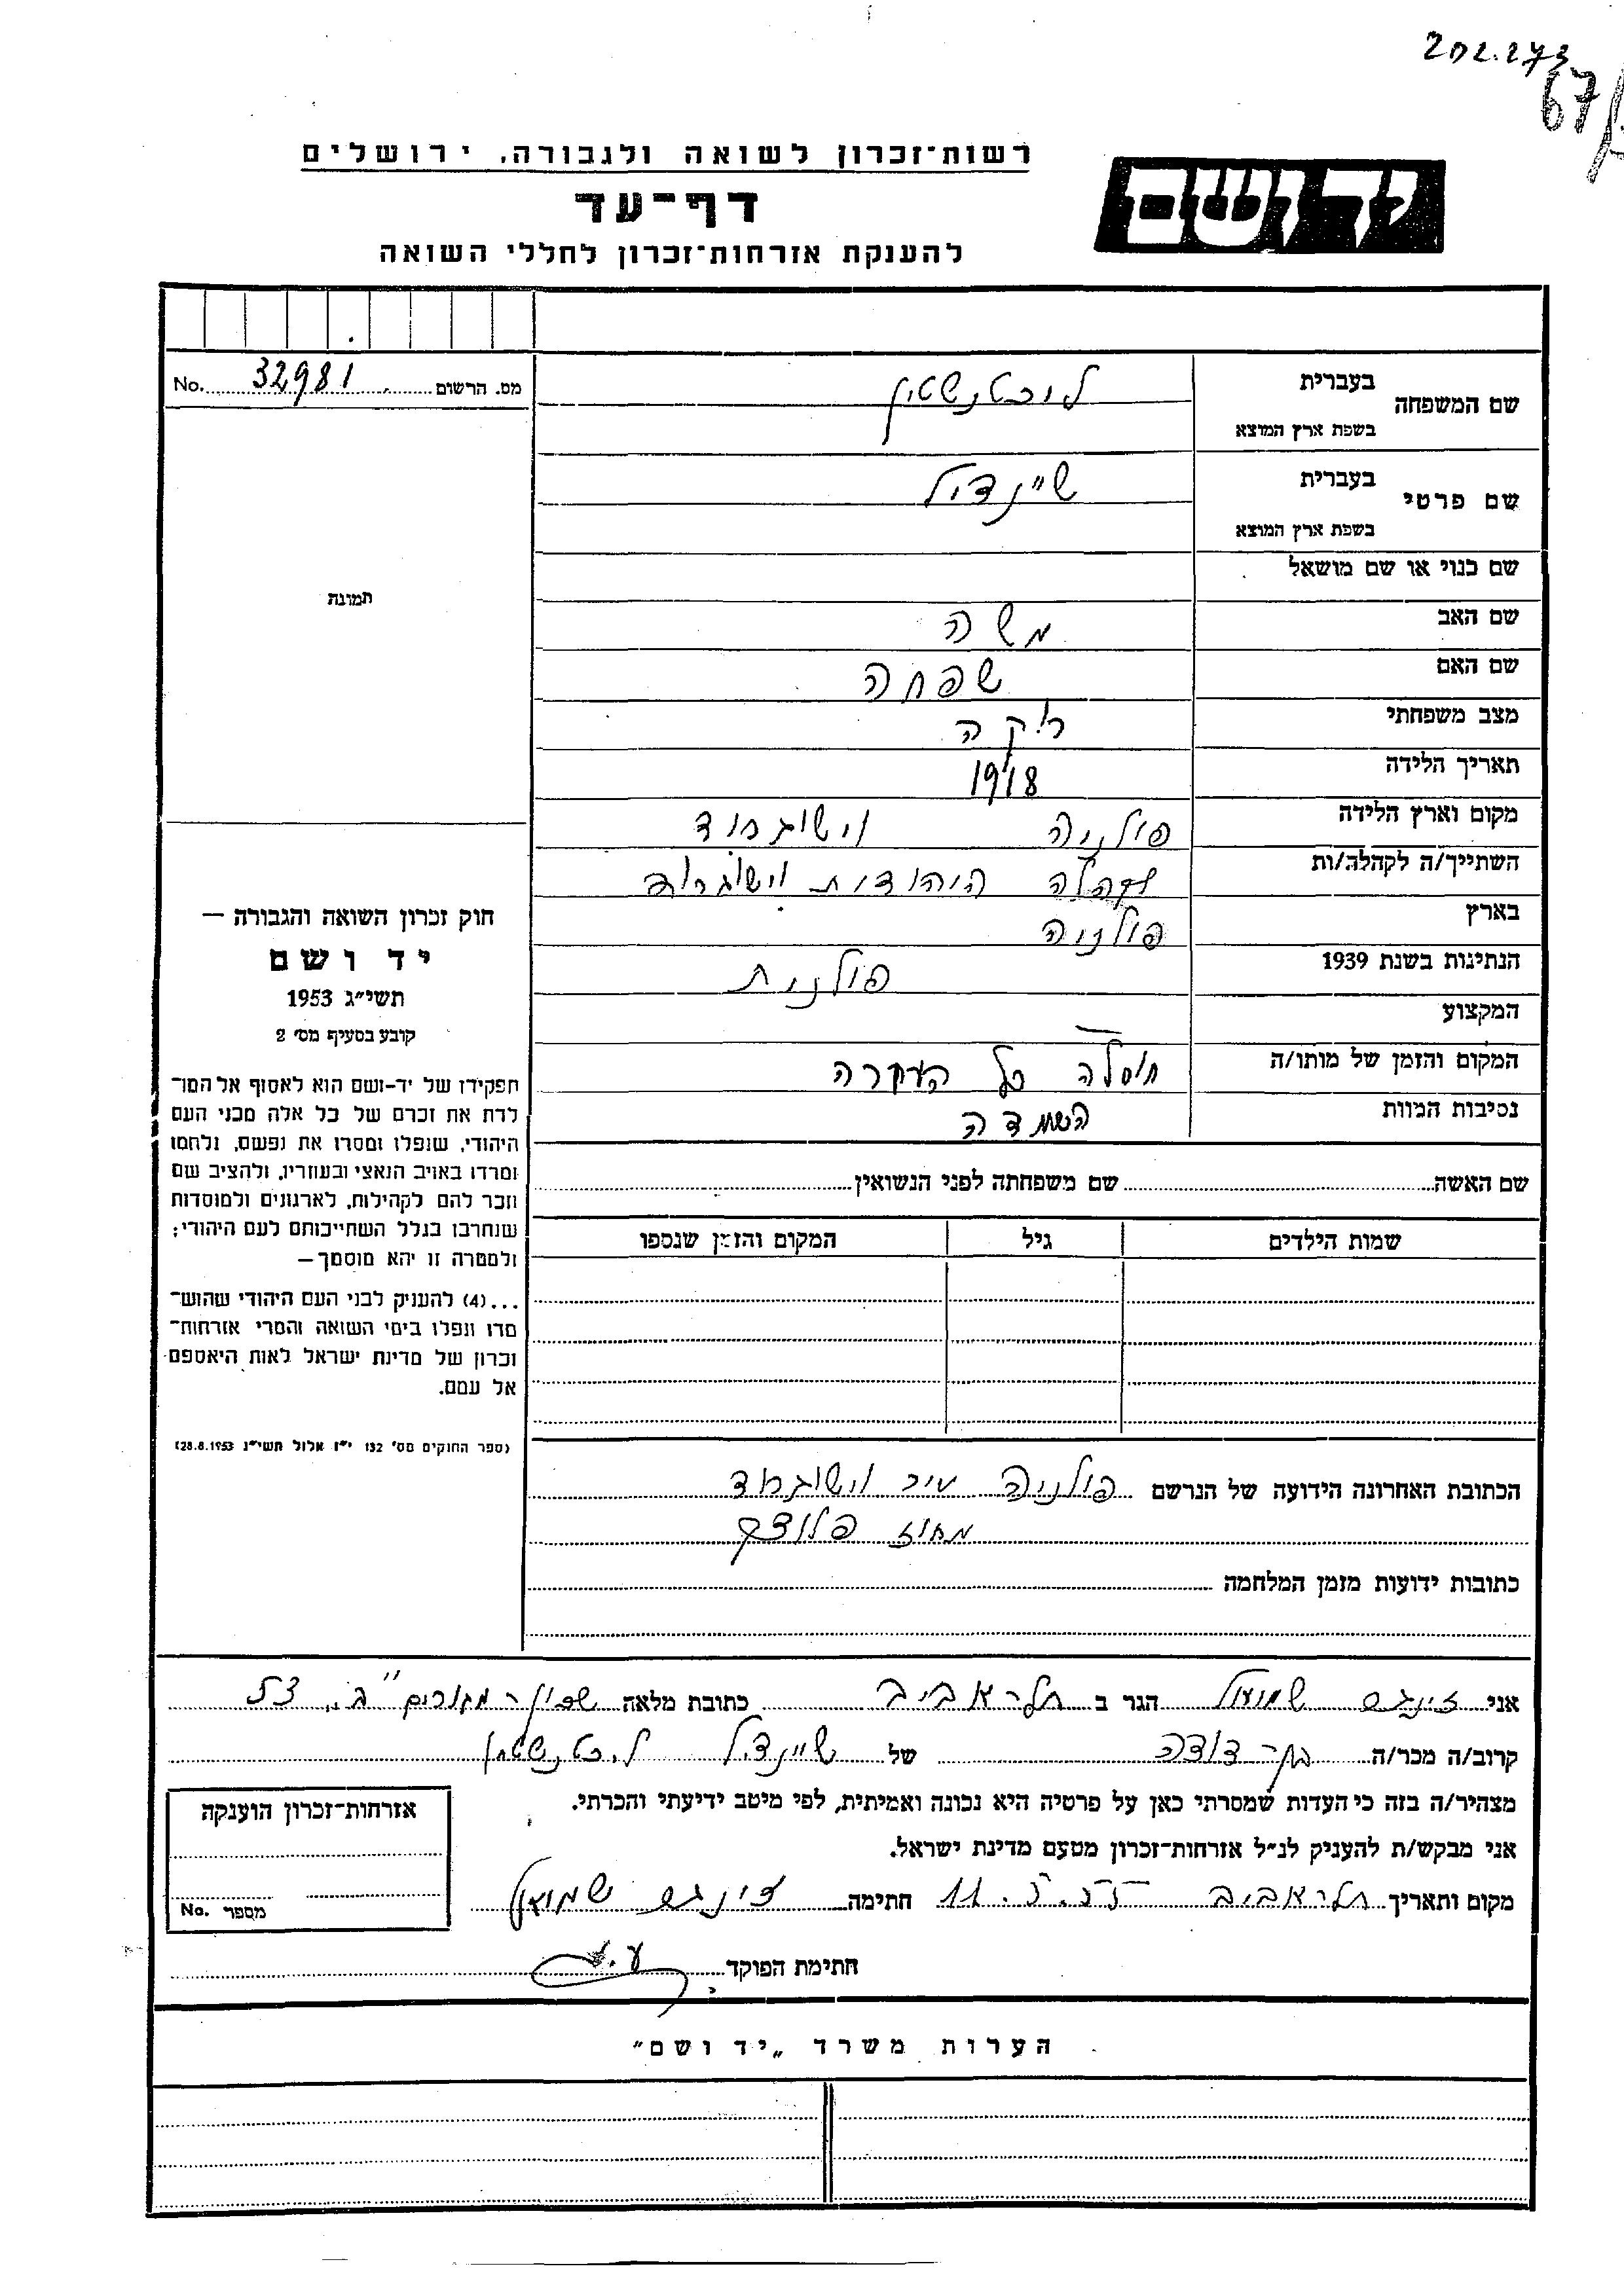 202.273
67/
רשות־זכרון לשואה ולגבורה, ירושלים
יד ושם
דף־עד
להענקת אזרחות־זכרון לחללי השואה
מס. הרשום 32981 No.
שם המשפחה בעברית ליכטנשטין
בשפת ארץ המוצא
שם פרטי בעברית שיינדיל
בשפת ארץ המוצא
שם כנוי או שם מושאל
תמונה
שם האב משה
שם האם שפחה
מצב משפחתי רוקה
תאריך הלידה 1918
מקום וארץ הלידה פולניה וישוגרוד
השתייך/ה לקהלה/ות קהלה היהודית וישוגרוד
בארץ פולניה
הנתינות בשנת 1939 פולנית
המקצוע —
המקום והזמן של מותו/ה חוסלה כל העקרה
נסיבות המוות השמדה
שם האשה שם משפחתה לפני הנשואין
שמות הילדים גיל המקום והזמן שנספו
חוק זכרון השואה והגבורה —
יד ושם
תשי״ג 1953
קובע בסעיף מס׳ 2
תפקידן של יד-ושם הוא לאסוף אל המו־
לדת את זכרם של כל אלה מבני העם
היהודי, שנפלו ומסרו את נפשם, נלחמו
ומרדו באויב הנאצי ובעוזריו, ולהציב שם
וזכר להם לקהילות, לארגונים ולמוסדות
שנחרבו בגלל השתייכותם לעם היהודי;
ולמטרה זו יהא מוסמך—
...(4) להעניק לבני העם היהודי שהוש־
מדו ונפלו בימי השואה והמרי אזרחות־
זכרון של מדינת ישראל לאות היאספם
אל עמם.
(ספר החוקים מס׳ 132 י״ז אלול תשי״ג 28.8.1953)
הכתובת האחרונה הידועה של הנרשם פולניה עיר וישוגרוד
מחוז פלוצק
כתובות ידועות מזמן המלחמה
אני זינגס שמואל הגר ב תל־אביב כתובת מלאה שכון־מגורים "ג,
קרוב/ה מכר/ה בן־דודה של שיינדיל ליכטנשטין
מצהיר/ה בזה כי העדות שמסרתי כאן על פרטיה היא נכונה ואמיתית, לפי מיטב ידיעתי והכרתי.
אני מבקש/ת להעניק לנ״ל אזרחות־זכרון מטעם מדינת ישראל.
מקום ותאריך תל־אביב חתימה זינגס שמואל
חתימת הפוקד
אזרחות־זכרון הוענקה
מספר No.
הערות משרד „יד ושם״